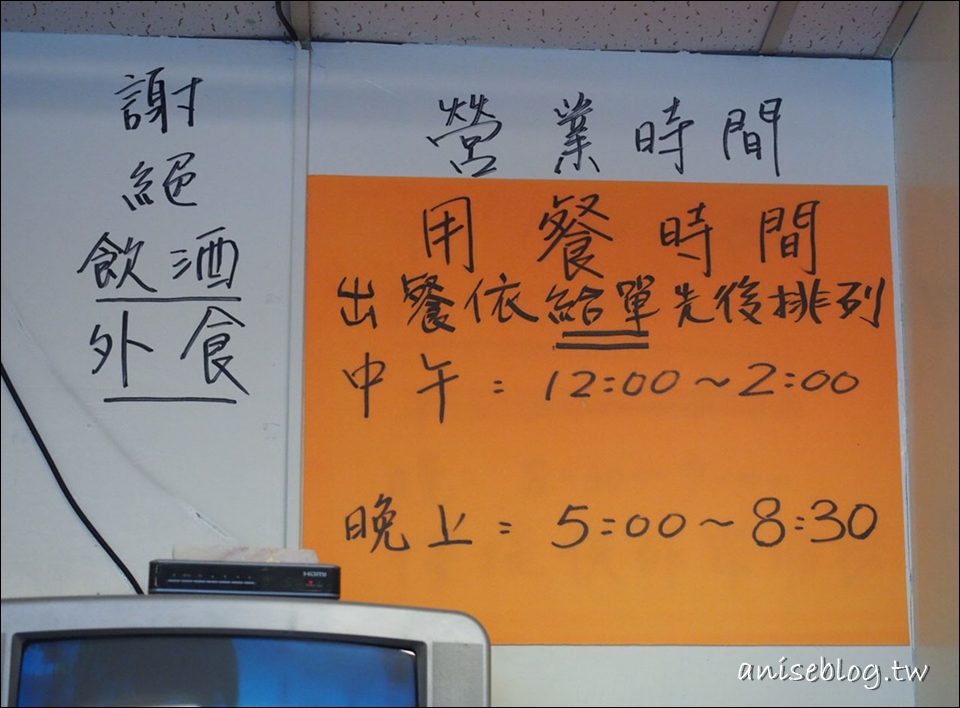 謝
絕
飲酒
外食
營業時間
用餐時間
出餐依給單先後排列
中午：12:00～2:00
晚上：5:00～8:30
HDMI
aniseblog.tw